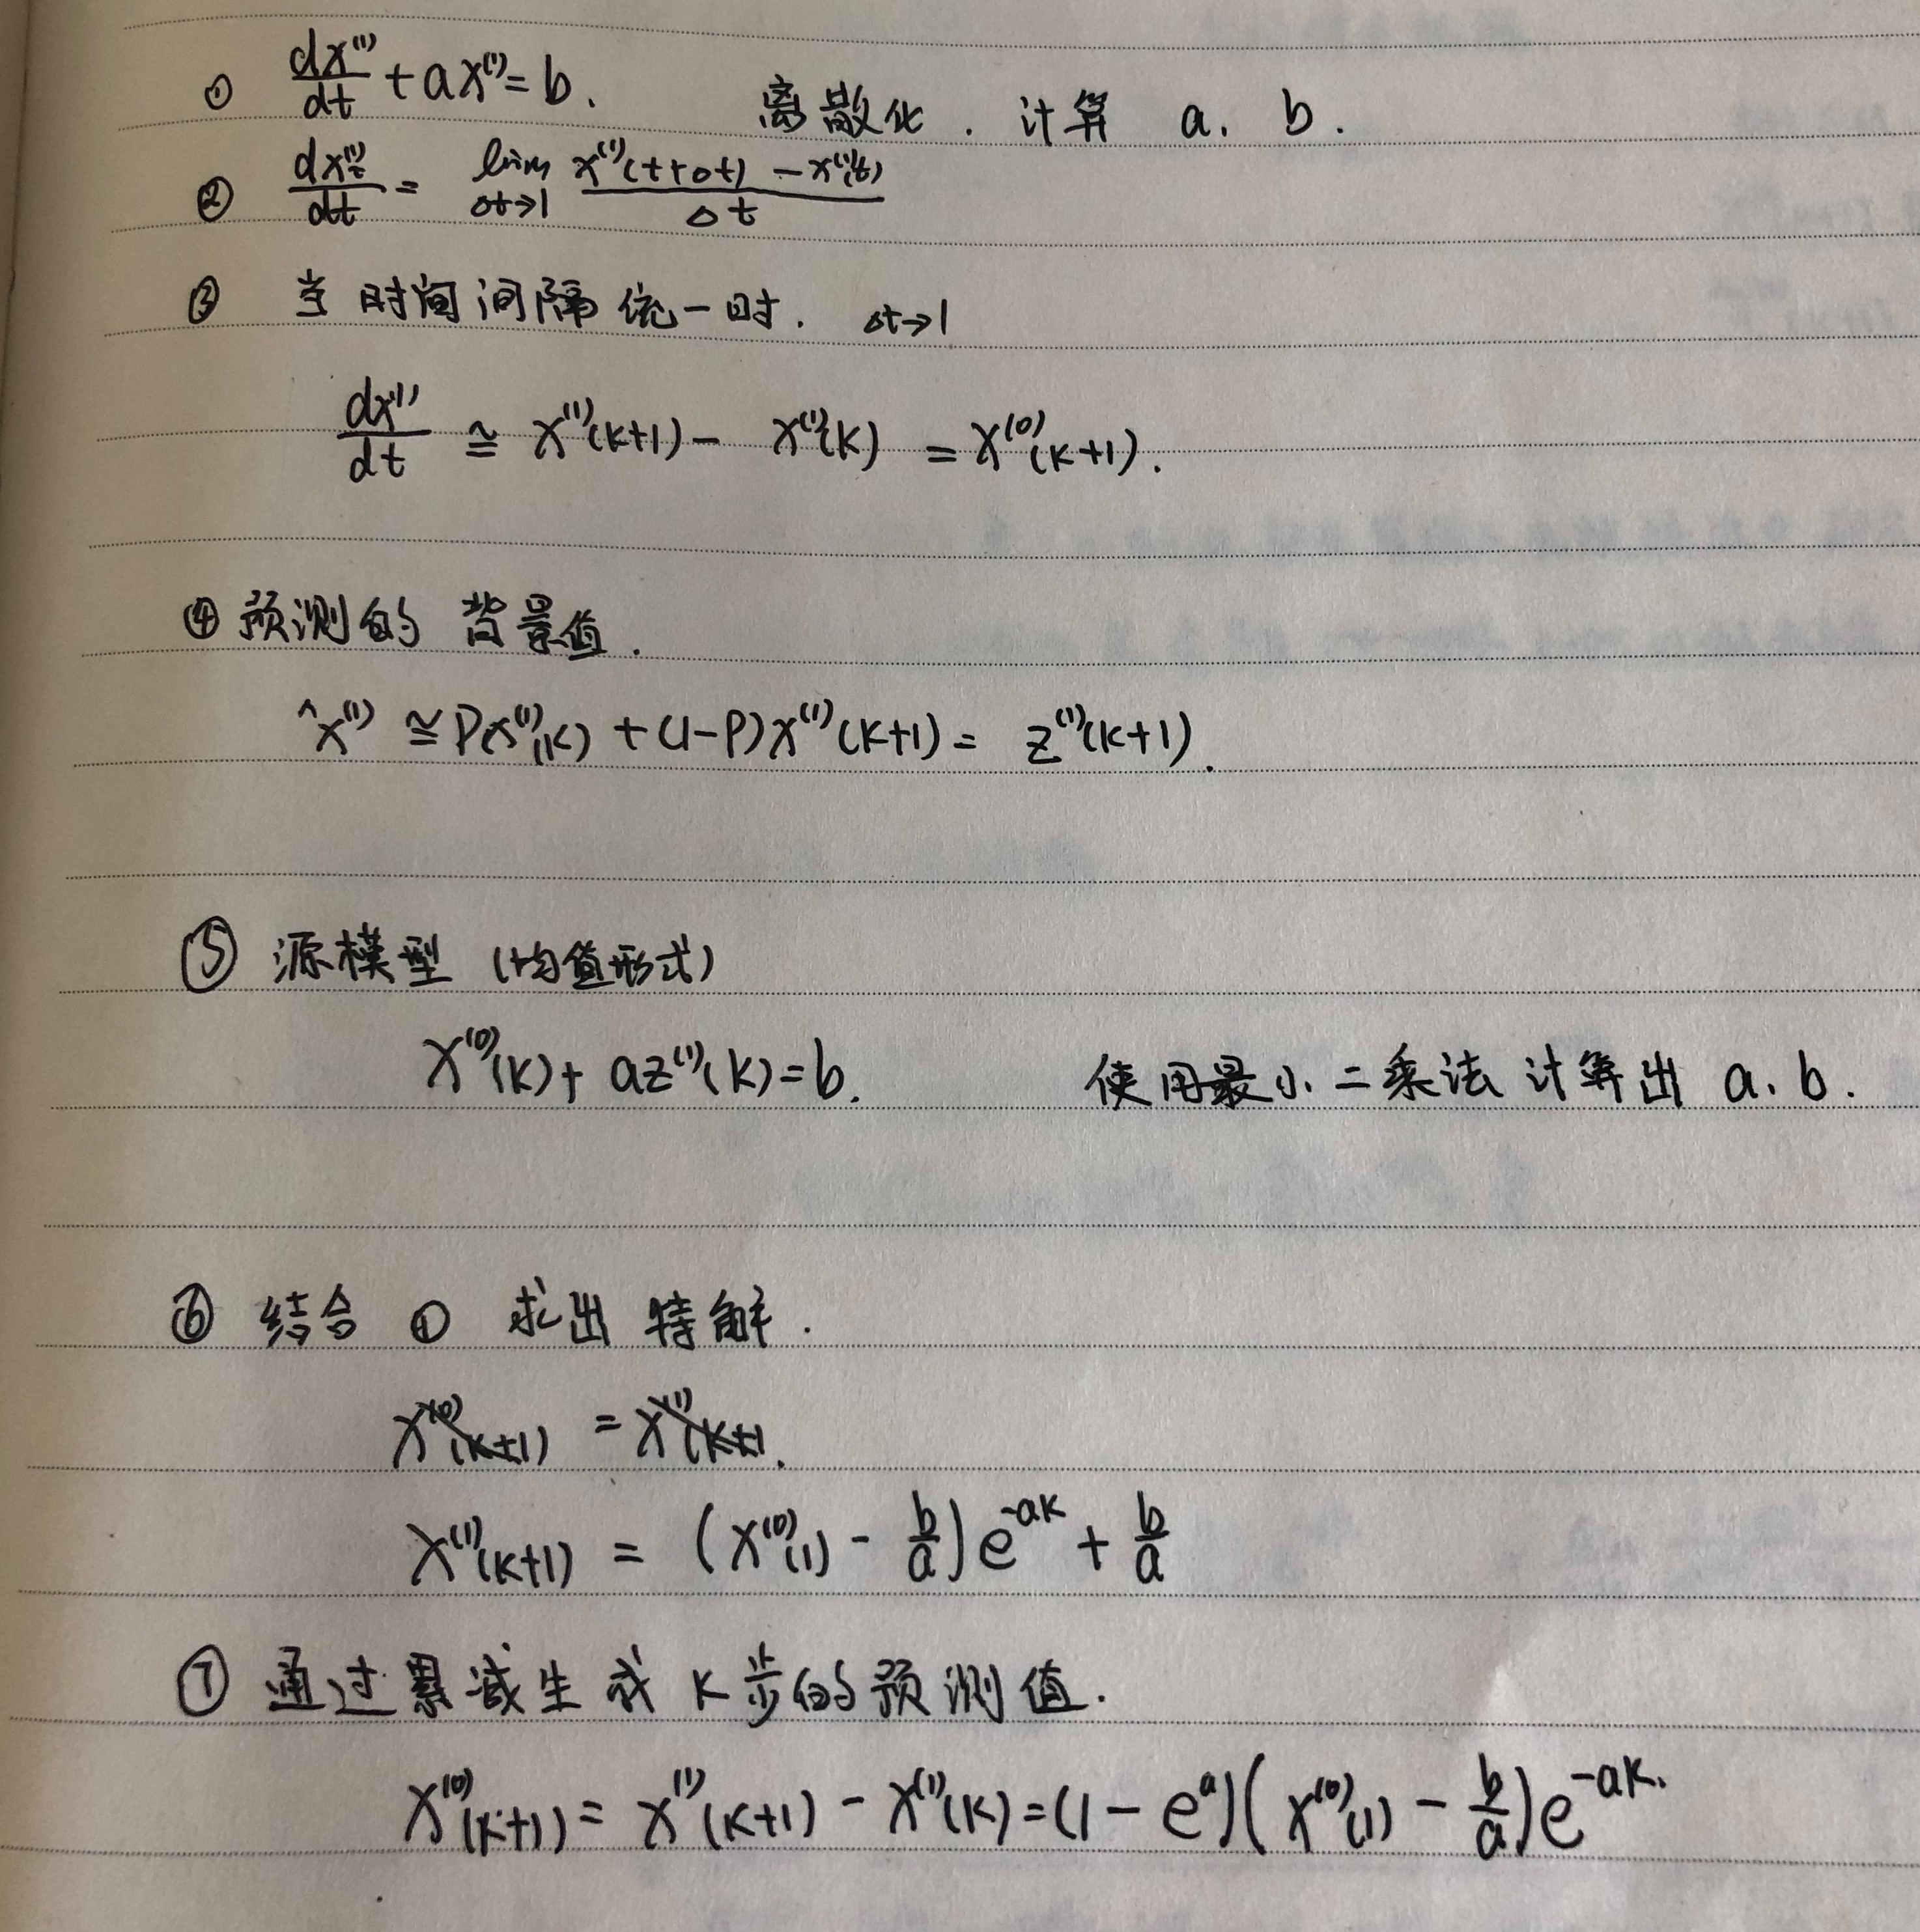 ① dx⁽¹⁾/dt + ax⁽¹⁾ = b. 离散化. 计算 a. b.
② dx⁽¹⁾t/dt = lim Δt→1 x⁽¹⁾(t+Δt) - x⁽¹⁾(t) / Δt
③ 当时间间隔统一时. Δt→1
dx⁽¹⁾/dt ≅ x⁽¹⁾(k+1) - x⁽¹⁾(k) = x⁽⁰⁾(k+1).
④ 预测的背景值.
^x⁽¹⁾ ≅ Px⁽¹⁾(k) + (1-P)x⁽¹⁾(k+1) = z⁽¹⁾(k+1).
⑤ 源模型 (均值形式)
x⁽⁰⁾(k) + az⁽¹⁾(k) = b. 使用最小二乘法计算出 a. b.
⑥ 结合 ① 求出特解.
x⁽⁰⁾(k+1) = x⁽¹⁾(k+1.
x⁽¹⁾(k+1) = (x⁽⁰⁾(1) - b/a)e^-ak + b/a
⑦ 通过累减生成 k步的预测值.
x⁽⁰⁾(k+1) = x⁽¹⁾(k+1) - x⁽¹⁾(k) = (1 - e^a)(x⁽⁰⁾(1) - b/a)e^-ak.